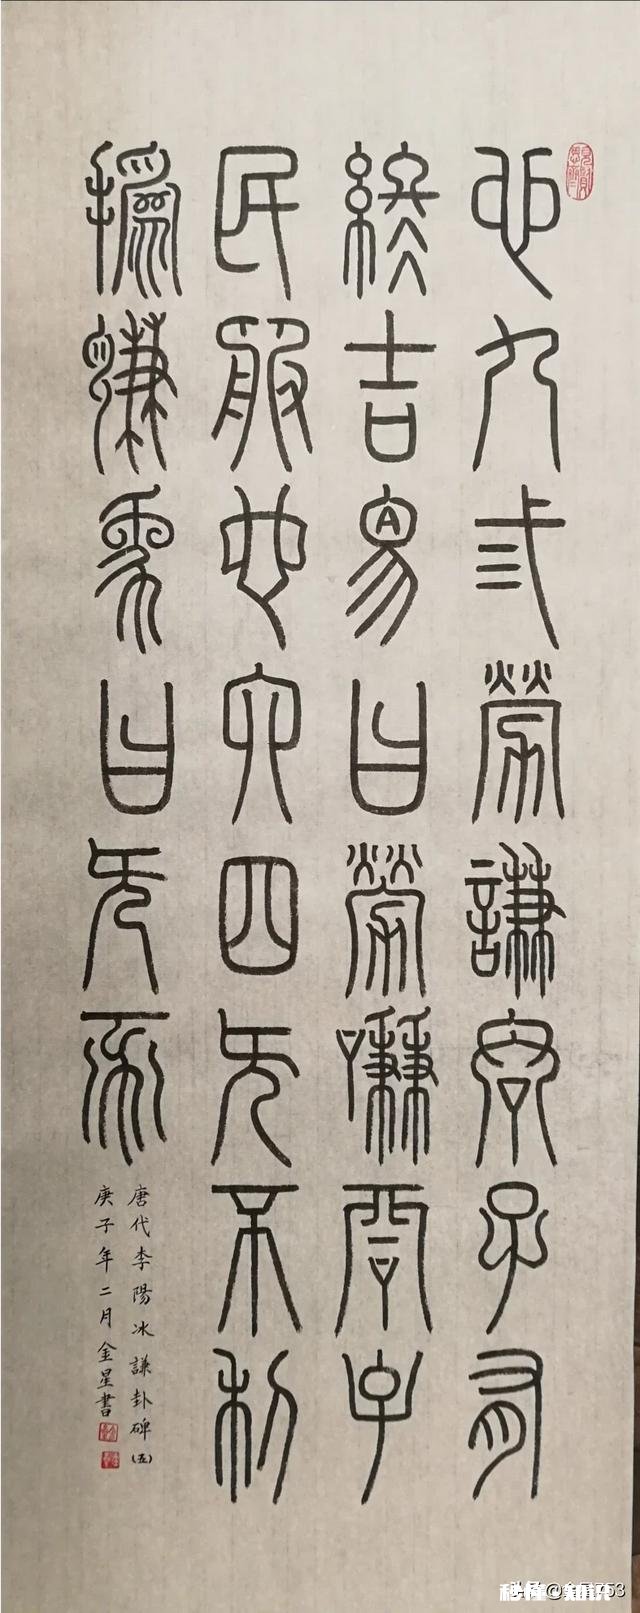 也九弎勞謙君子有
終吉象曰勞謙君子
民服也六四无不利
撝謙象曰无不
唐代李陽冰謙卦碑(五)
庚子年二月金星書